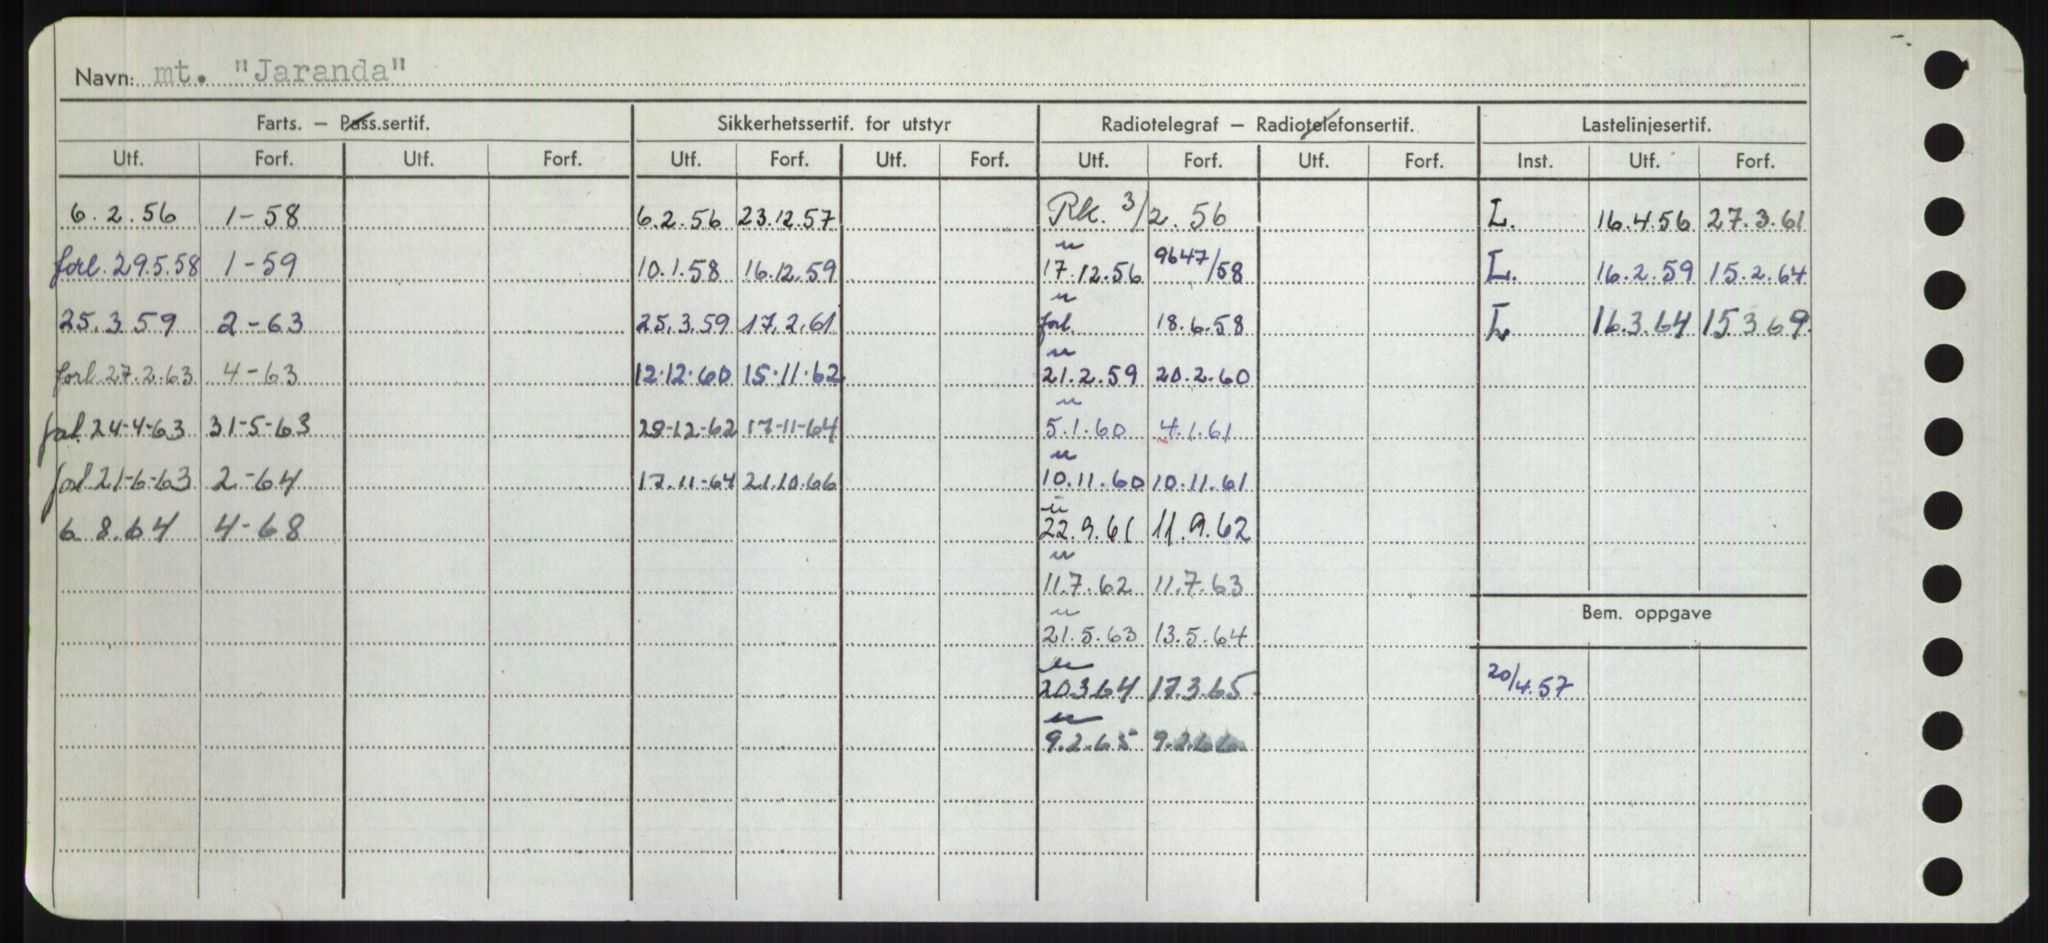 Navn: mt. "Jaranda"
Farts. — Pass.sertif. Sikkerhetssertif. for utstyr Radiotelegraf — Radiotelefonsertif. Lastelinjesertif.
Utf. Forf. Utf. Forf. Utf. Forf. Utf. Forf. Utf. Forf. Utf. Forf. Inst. Utf. Forf.
6.2.56 1-58 6.2.56 23.12.57 Rk. 3/2.56 L. 16.4.56 27.3.61
forl. 29.5.58 1-59 10.1.58 16.12.59 " 17.12.56 9647/58 L. 16.2.59 15.2.64
25.3.59 2-63 25.3.59 17.2.61 " forl. 18.6.58 L 16.3.64 15 3 69.
forl. 27.2.63 4-63 12.12.60 15.11.62 " 21.2.59 20.2.60
forl. 24-4-63 31-5-63 29-12-62 17-11-64 " 5.1.60 4.1.61
forl 21-6-63 2-64 17.11-64 21.10.66 " 10.11.60 10.11.61
6 8.64 4-68 " 22.9.61 11.9.62
" 11.7.62 11.7.63
Bem. oppgave
" 21.5.63 13.5.64
" 20.3.64 17.3.65 20/4.57
" 9.2.65 9.2.66